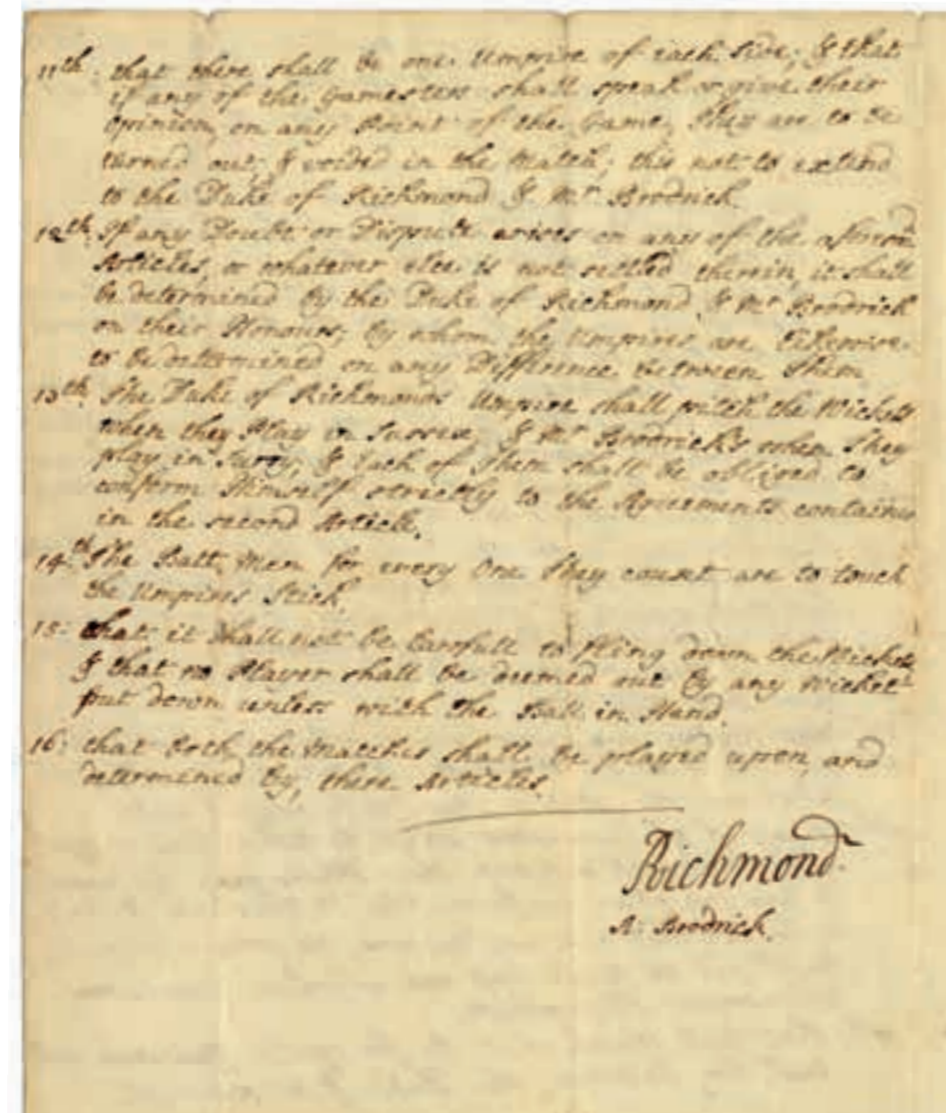 11th: that there shall be one Umpire of each Side; & that
if any of the Gamesters shall speak or give their
Opinion, on any Point of the Game, they are to be
turned out, & voided in the Match; this not to extend
to the Duke of Richmond & Mr Brodrick.
12th: If any Doubt or Dispute arises on any of the aforesaid
Articles, or whatever else is not settled therein, it shall
be determined by the Duke of Richmond & Mr Brodrick
on their Honours; by whom the Umpires are likewise
to be determined on any Difference between them.
13th The Duke of Richmonds Umpire shall pitch the Wickets
when they Play in Sussex; & Mr Brodrick's when they
play in Surry; & Each of them shall be obliged to
conform Himself strictly to the Agreements contained
in the second Article.
14th The Batt Men for every One they count are to touch
the Umpires Stick.
15: that it shall not be lawfull to fling down the Wickets,
& that no Player shall be deemed out by any Wicket
put down unless with the Ball in Hand.
16: that both the Matches shall be played upon, and
determined by, these Articles.
Richmond.
A: Brodrick.